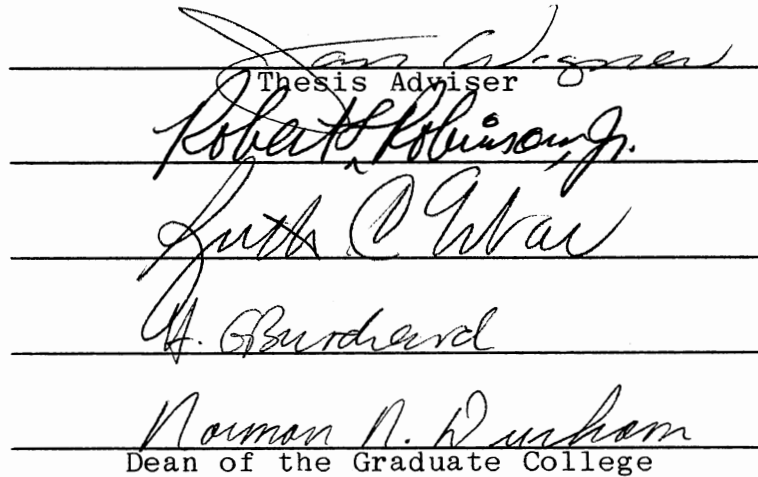 Jan Wagner
Thesis Adviser
Robert L. Robinson, Jr.
Ruth C. Erbar
H. G. Burchard
Norman N. Durham
Dean of the Graduate College